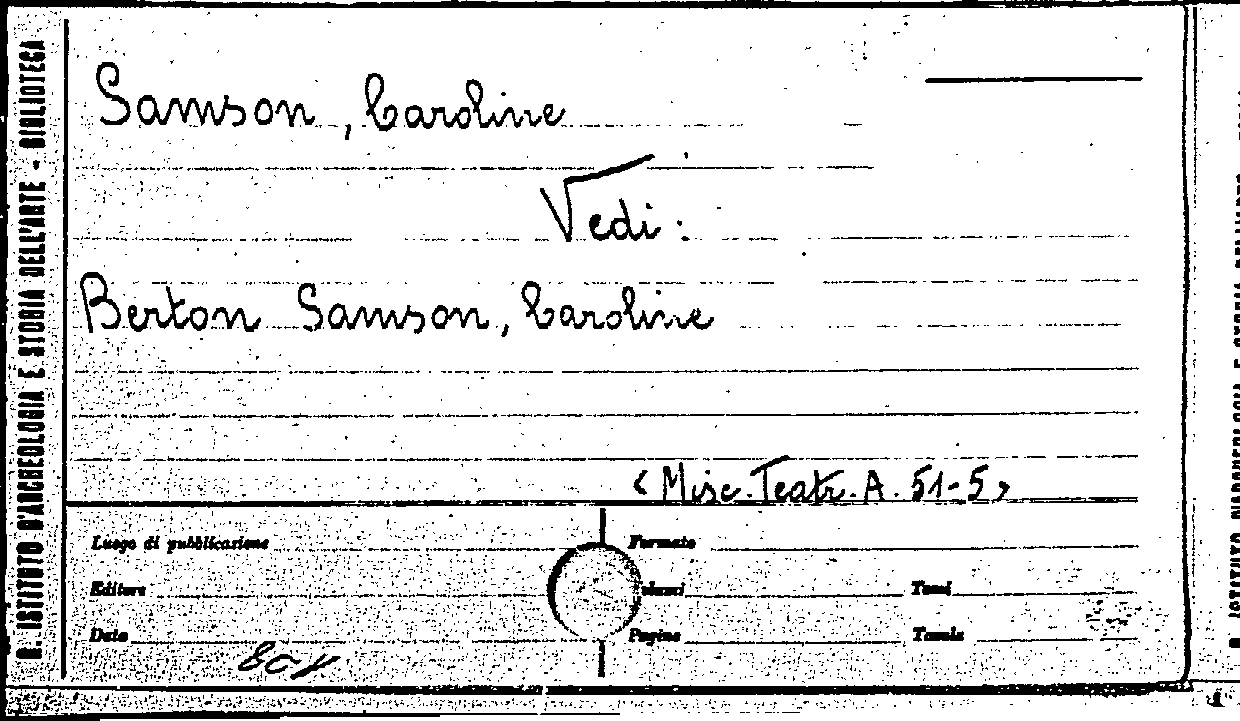 R. ISTITUTO D'ARCHEOLOGIA E STORIA DELL'ARTE - BIBLIOTECA
Samson, Caroline
Vedi:
Berton Samson, Caroline
< Misc. Teatr. A. 51-5 >
Luogo di pubblicazione
Formato
Editore
Tomi
Data
Pagine
Tavole